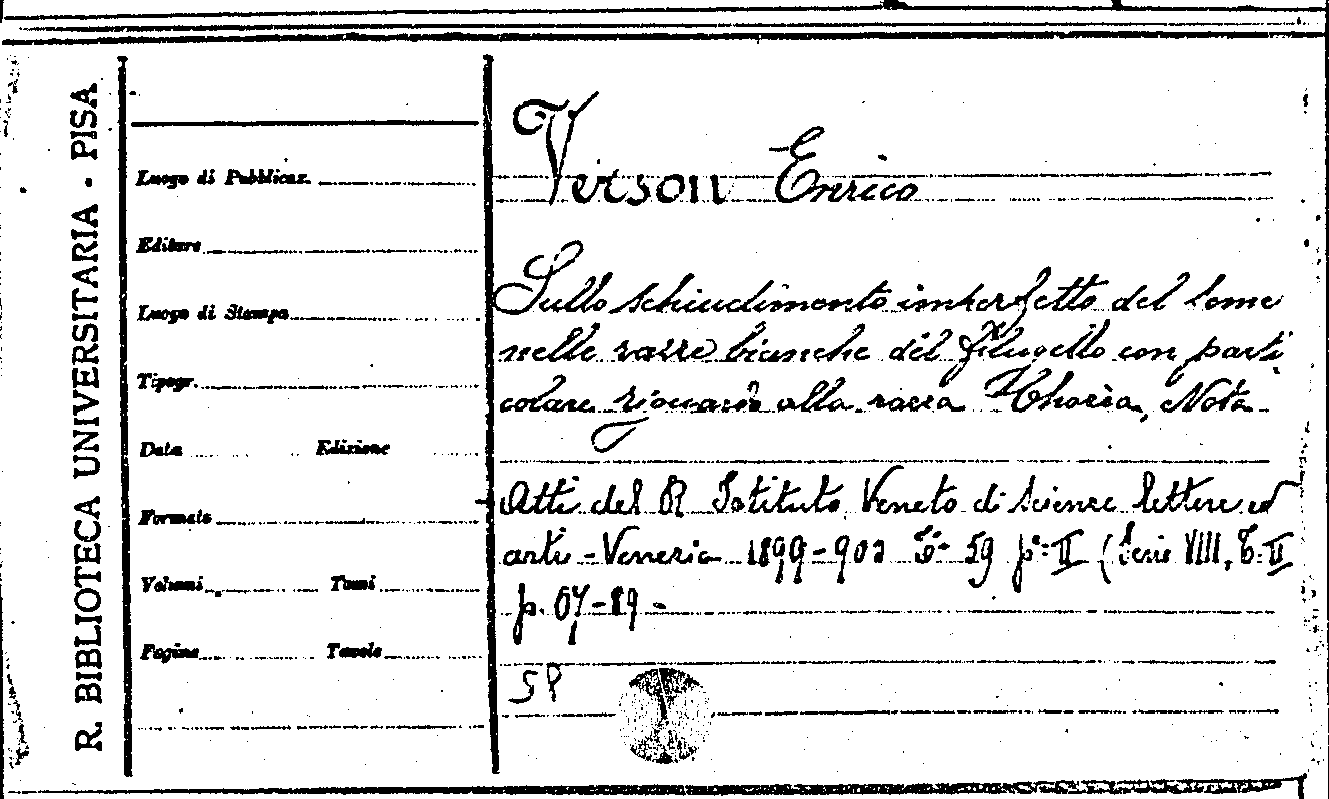 R. BIBLIOTECA UNIVERSITARIA - PISA
Luogo di Pubblicaz.
Editore
Luogo di Stampa
Tipogr.
Data Edizione
Formato
Volumi Tomi
Pagine Tavole
Verson Enrico
Sullo schiudimento imperfetto del seme
nelle razze bianche del filugello con parti
colare riguardo alla razza Nota
Atti del R Istituto Veneto di Scienze lettere ed
arti - Venezia 1899-900 T. 59 p. II (Serie VIII, T. II
p. 67-89 -